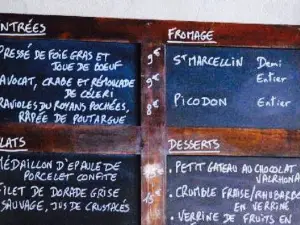 NTRÉES
PRESSÉ DE FOIE GRAS ET
JOUE DE BOEUF
9€
AVOCAT, CRABE ET RÉMOULADE
DE CÉLERI
9€
RAVIOLES DU ROYANS POCHÉES,
RÂPÉE DE POUTARGUE
8€
LATS
MÉDAILLON D'EPAULE DE
PORCELET CONFITE
FILET DE DORADE GRISE
SAUVAGE, JUS DE CRUSTACÉS
15€
FROMAGE
ST MARCELLIN Demi
Entier
PICODON Demi
Entier
DESSERTS
. PETIT GATEAU AU CHOCOLAT
VALRHONA
. CRUMBLE FRAISE/RHUBARBE
EN VERRINE
. VERRINE DE FRUITS EN